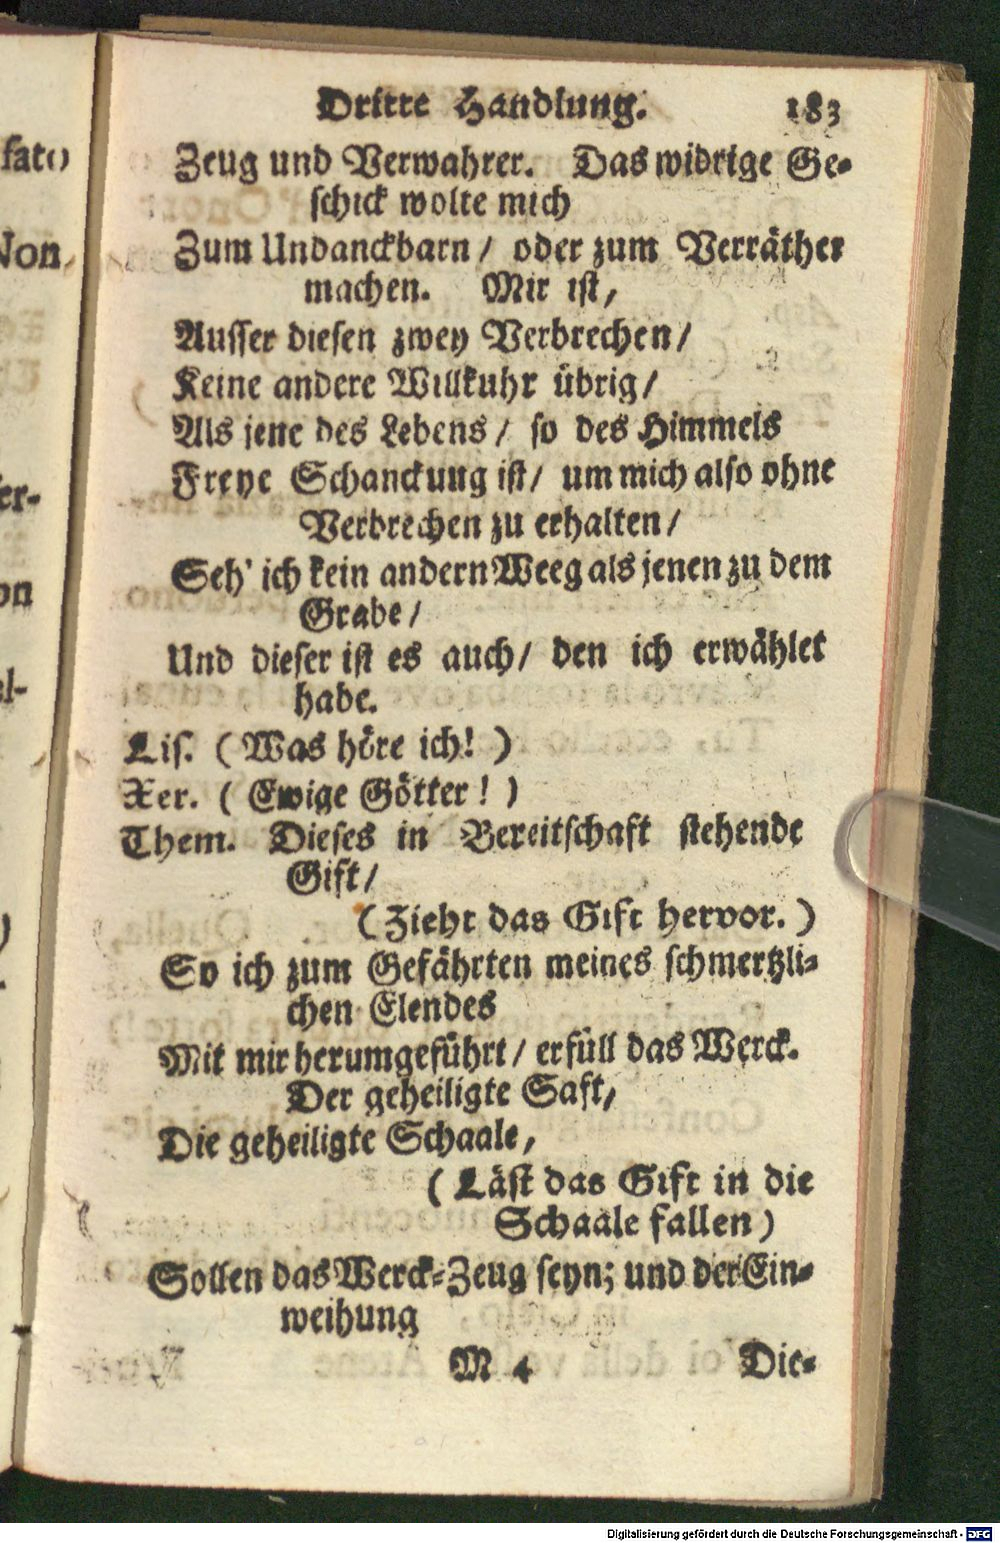 Dritte Handlung. 183
Zeug und Verwahrer. Das widrige Ge-
schick wolte mich
Zum Undanckbarn / oder zum Verräther
machen. Mir ist,
Ausser diesen zwey Verbrechen /
Keine andere Willkuhr übrig /
Als jene des Lebens / so des Himmels
Freye Schanckung ist / um mich also ohne
Verbrechen zu erhalten /
Seh' ich kein andern Weeg als jenen zu dem
Grabe /
Und dieser ist es auch / den ich erwählet
habe.
Lis. (Was höre ich! )
Xer. ( Ewige Götter! )
Them. Dieses in Bereitschaft stehende
Gift /
(Zieht das Gift hervor.)
So ich zum Gefährten meines schmertzli-
chen Elendes
Mit mir herumgeführt / erfüll das Werck.
Der geheiligte Saft,
Die geheiligte Schaale,
( Läst das Gift in die
Schaale fallen )
Sollen das Werck-Zeug seyn; und der Ein-
weihung
M 4 Die-
fato
Non
er-
on
el-
)
Digitalisierung gefördert durch die Deutsche Forschungsgemeinschaft - DFG